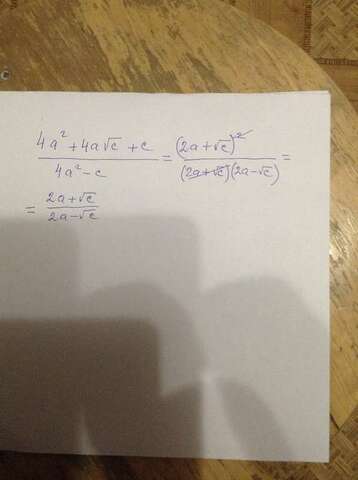 (4a² + 4a√c + c)/(4a² - c) = (2a + √c)²/((2a + √c)(2a - √c)) =
= (2a + √c)/(2a - √c)